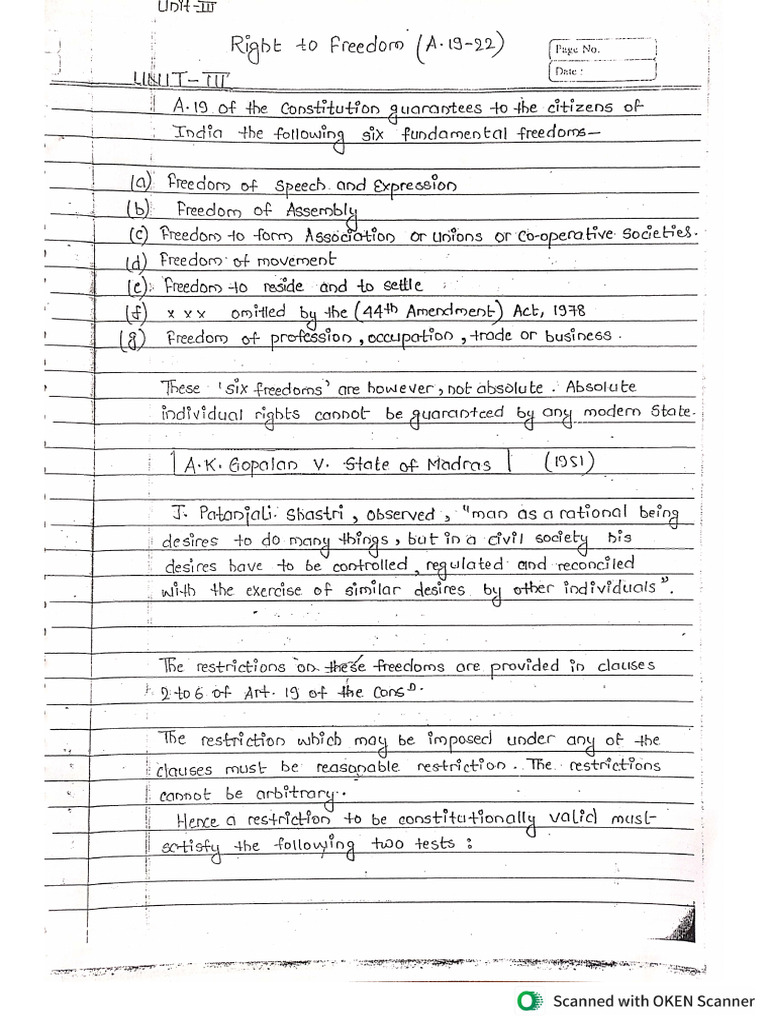 Unit-III
Right to Freedom (A.19-22)
Page No.
Date :
UNIT-III
A.19 of the Constitution guarantees to the citizens of
India the following six fundamental freedoms—
(a) Freedom of Speech and Expression
(b) Freedom of Assembly
(c) Freedom to form Association or unions or co-operative societies.
(d) Freedom of movement
(e) Freedom to reside and to settle
(f) x x x omitted by the (44th Amendment) Act, 1978
(g) Freedom of profession, occupation, trade or business.
These 'six freedoms' are however, not absolute. Absolute
individual rights cannot be guaranteed by any modern State.
A.K. Gopalan V. State of Madras (1951)
J. Patanjali Shastri, observed, "man as a rational being
desires to do many things, but in a civil society his
desires have to be controlled, regulated and reconciled
with the exercise of similar desires by other individuals".
The restrictions on these freedoms are provided in clauses
2 to 6 of Art. 19 of the Consⁿ.
The restriction which may be imposed under any of the
clauses must be reasonable restriction. The restrictions
cannot be arbitrary.
Hence a restriction to be constitutionally valid must
satisfy the following two tests :
Scanned with OKEN Scanner